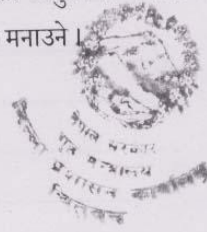 मनाउने ।
नेपाल सरकार
गृह मन्त्रालय
प्रशासन कार्यालय